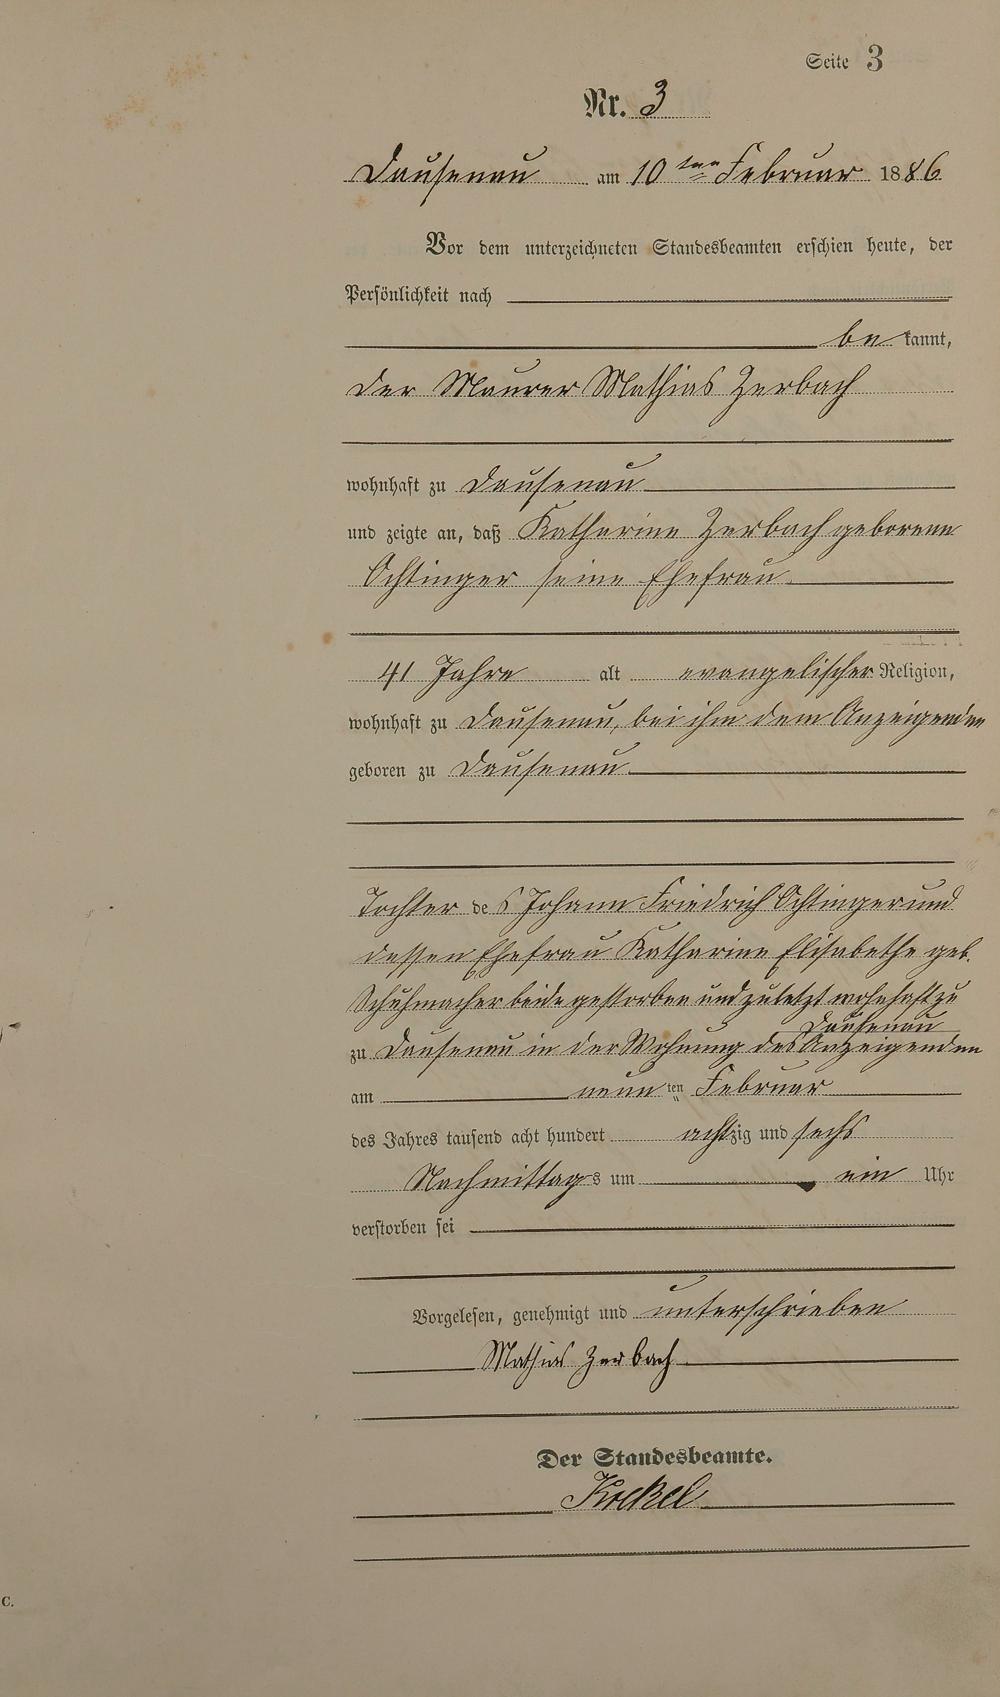 Seite 3
Nr. 3
Dausenau am 10ten Februar 1886
Vor dem unterzeichneten Standesbeamten erschien heute, der
Persönlichkeit nach
be kannt,
der Maurer Mathias Zerbach
wohnhaft zu Dausenau
und zeigte an, daß Katharine Zerbach geborene
Ochtinger seine Ehefrau
41 Jahre alt evangelischer Religion,
wohnhaft zu Dausenau, bei ihm dem Anzeigenden
geboren zu Dausenau
Tochter des Johann Friedrich Ochtinger und
dessen Ehefrau Katharine Elisabethe geb.
Schuhmacher beide gestorben und zuletzt wohnhaft zu
Dausenau
zu Dausenau in der Wohnung des Anzeigenden
am neun ten Februar
des Jahres tausend acht hundert achtzig und sechs
Nachmittags um ein Uhr
verstorben sei
Vorgelesen, genehmigt und unterschrieben
Mathias Zerbach
Der Standesbeamte.
Kockel
C.